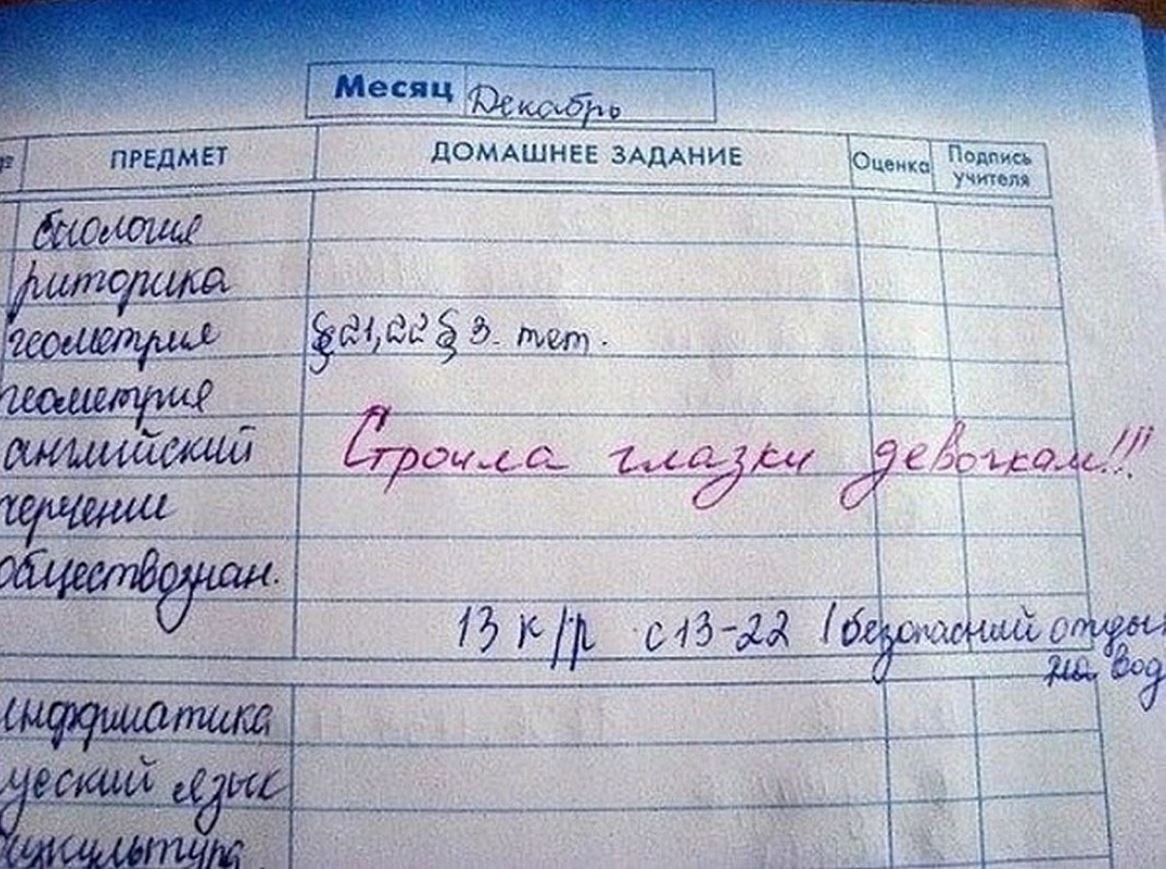 Месяц Декабрь
№ ПРЕДМЕТ ДОМАШНЕЕ ЗАДАНИЕ Оценка Подпись учителя
биология
риторика
геометрия §21,22 § 3. тет.
геометрия
английский Строила глазки девочкам!!!
черчение
обществознан.
13 к/р с 13-22 (безопасний отды
на вод
информатика
усский язык
изкультура